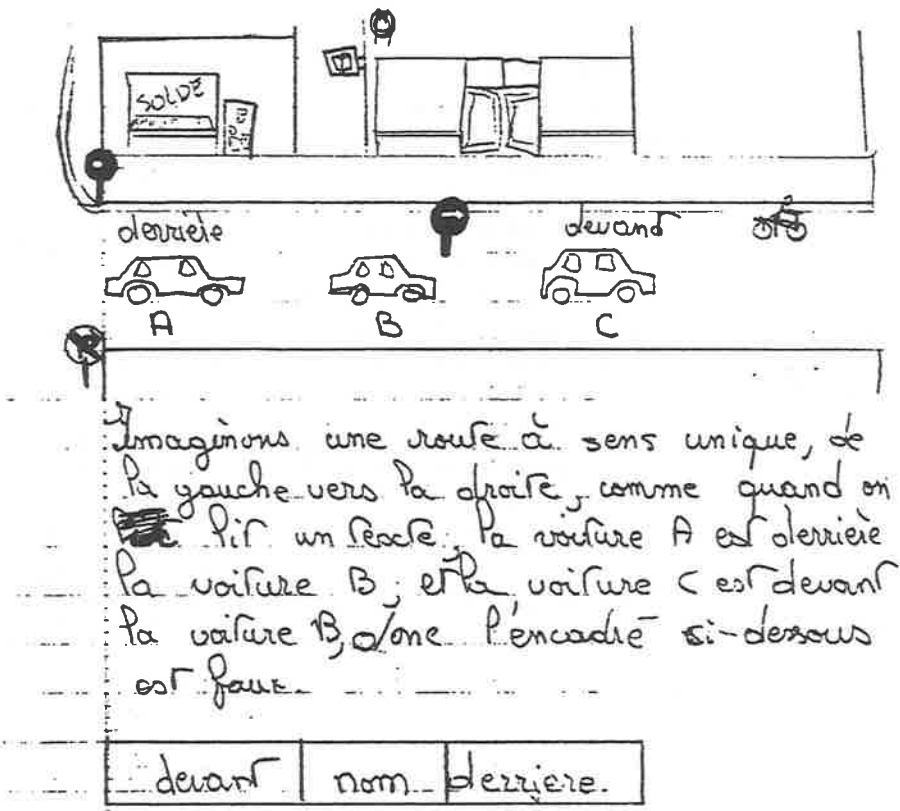 SOLDE
derrière devant
A B C
Imaginons une route à sens unique, de
la gauche vers la droite, comme quand on
lit un texte, la voiture A est derrière
la voiture B, et la voiture C est devant
la voiture B, donc l'encadré ci-dessous
est faux.
devant nom derriere.